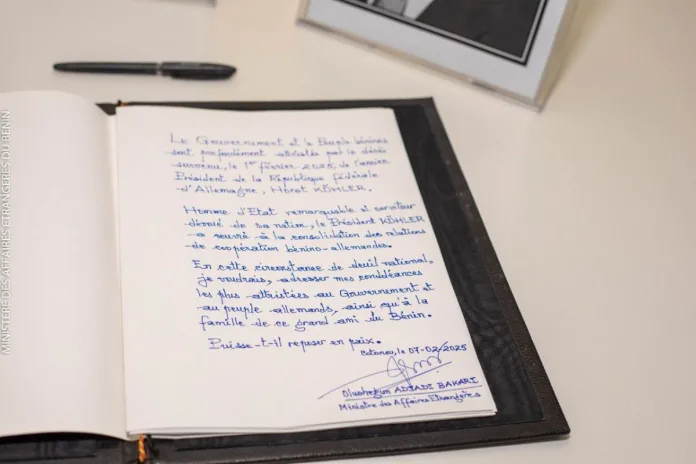 Le Gouvernement et le Peuple béninois
sont profondément attristés par le décès
survenu, le 1er février 2025, de l'ancien
Président de la République fédérale
d'Allemagne, Horst KÖHLER.
Homme d'Etat remarquable et serviteur
dévoué de sa nation, le Président KÖHLER
a œuvré à la consolidation des relations
de coopération bénino-allemandes.
En cette circonstance de deuil national,
je voudrais, adresser mes condoléances
les plus attristées au Gouvernement et
au peuple allemands, ainsi qu'à la
famille de ce grand ami du Bénin.
Puisse-t-il reposer en paix.
Cotonou, le 07-02/2025
Olushegun ADJADI BAKARI
Ministre des Affaires Etrangères
MINISTÈRE DES AFFAIRES ETRANGÈRES DU BÉNIN